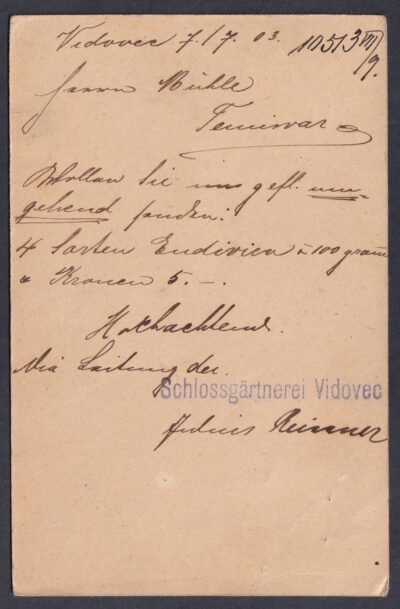 Vidovec 7./7. 03.
1051 3 VII/9.
Herrn Mühle
Temisvar
Wollen Sie uns gefl. um-
gehend senden:
4 Sorten Endivien à 100 gramm
" Kronen 5.—.
Hochachtend.
Die Leitung der
Schlossgärtnerei Vidovec
Julius